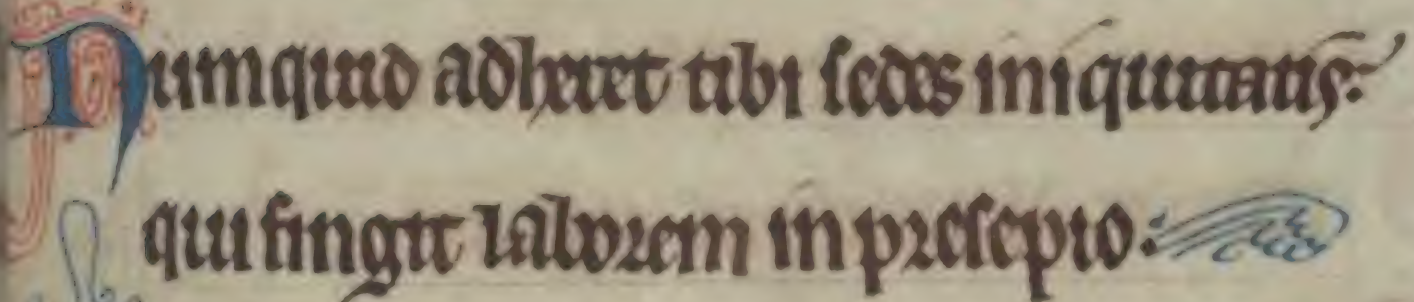 Numquid adheret tibi sedes iniquitatis:
qui fingit laborem in presepio: